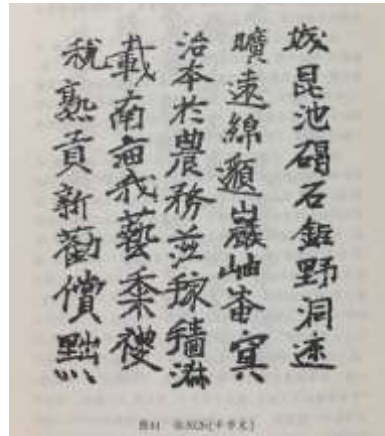 城昆池碣石鉅野洞庭
曠遠綿邈巖岫杳冥
治本於農務茲稼穡俶
載南畝我藝黍稷
稅熟貢新勸償黜
《千字文》